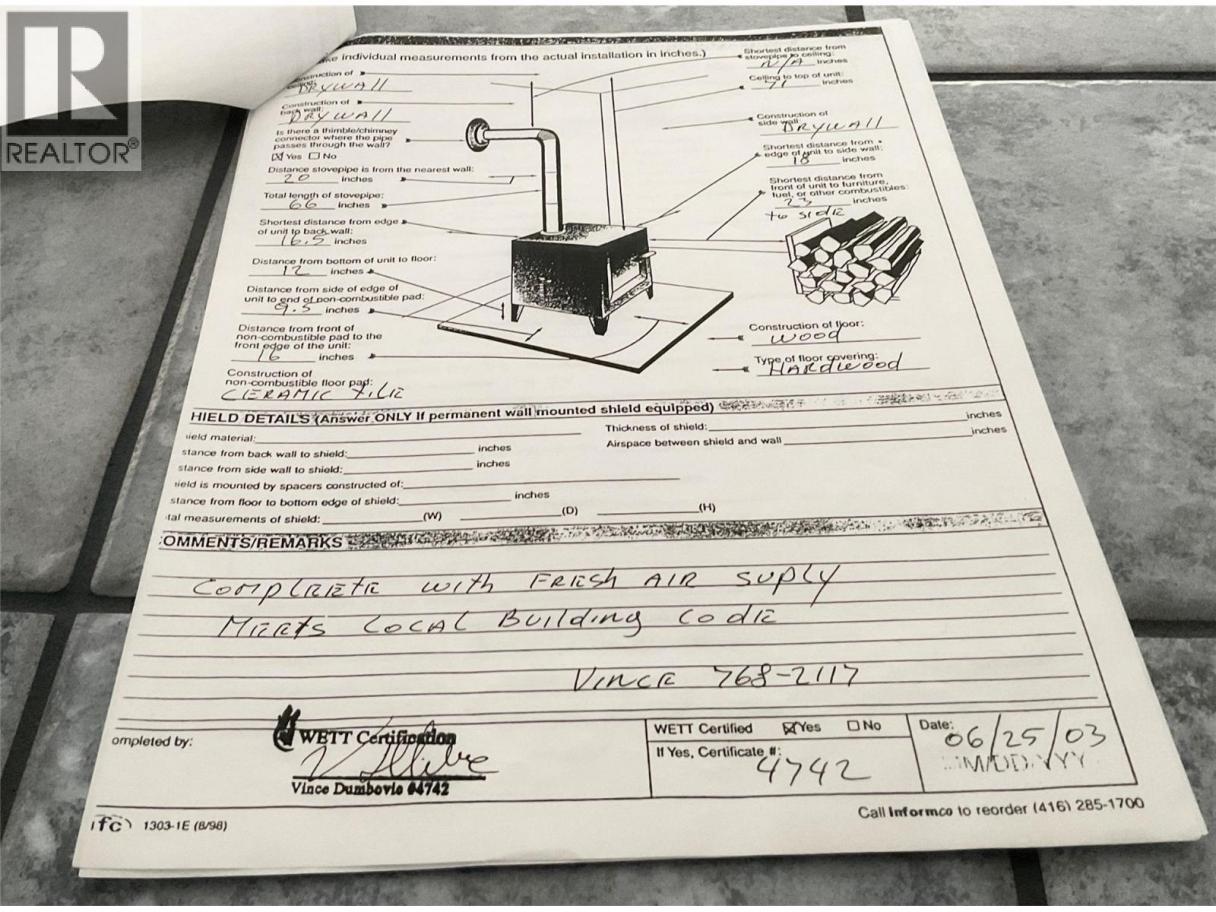 R
REALTOR®
ke individual measurements from the actual installation in inches.)
Shortest distance from
stovepipe to ceiling:
N/A inches
Ceiling to top of unit:
71 inches
nstruction of
DRYWALL
Construction of
back wall:
DRYWALL
Is there a thimble/chimney
connector where the pipe
passes through the wall?
☒ Yes ☐ No
Distance stovepipe is from the nearest wall:
20 inches
Total length of stovepipe:
66 inches
Shortest distance from edge
of unit to back wall:
16.5 inches
Distance from bottom of unit to floor:
12 inches
Distance from side of edge of
unit to end of non-combustible pad:
9.5 inches
Distance from front of
non-combustible pad to the
front edge of the unit:
16 inches
Construction of
non-combustible floor pad:
CERAMIC TILE
Construction of
side wall:
DRYWALL
Shortest distance from
edge of unit to side wall:
18 inches
Shortest distance from
front of unit to furniture,
fuel, or other combustibles:
23 inches
to SIDE
Construction of floor:
WOOD
Type of floor covering:
HARDWOOD
HIELD DETAILS (Answer ONLY if permanent wall mounted shield equipped)
ield material:
Thickness of shield: inches
stance from back wall to shield: inches
Airspace between shield and wall inches
stance from side wall to shield: inches
ield is mounted by spacers constructed of:
stance from floor to bottom edge of shield: inches
tal measurements of shield: (W) (D) (H)
OMMENTS/REMARKS
COMPLEETE WITH FRESH AIR SUPLY
MEETS LOCAL BUILDING CODE
VINCE 768-2117
ompleted by:
WETT Certification
Vince Dumbovic #4742
WETT Certified ☒ Yes ☐ No
If Yes, Certificate #:
4742
Date:
06/25/03
MM/DD/YYY
ifc 1303-1E (8/98)
Call Informco to reorder (416) 285-1700